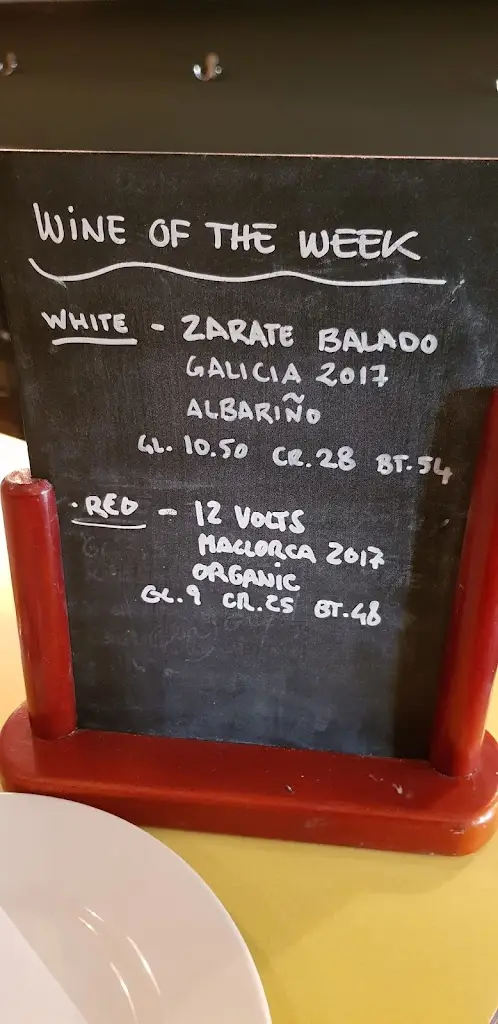 WINE OF THE WEEK
WHITE - ZARATE BALADO
GALICIA 2017
ALBARIÑO
GL. 10.50 CR. 28 BT. 54
· RED - 12 VOLTS
MALLORCA 2017
ORGANIC
GL. 9 CR. 25 BT. 48